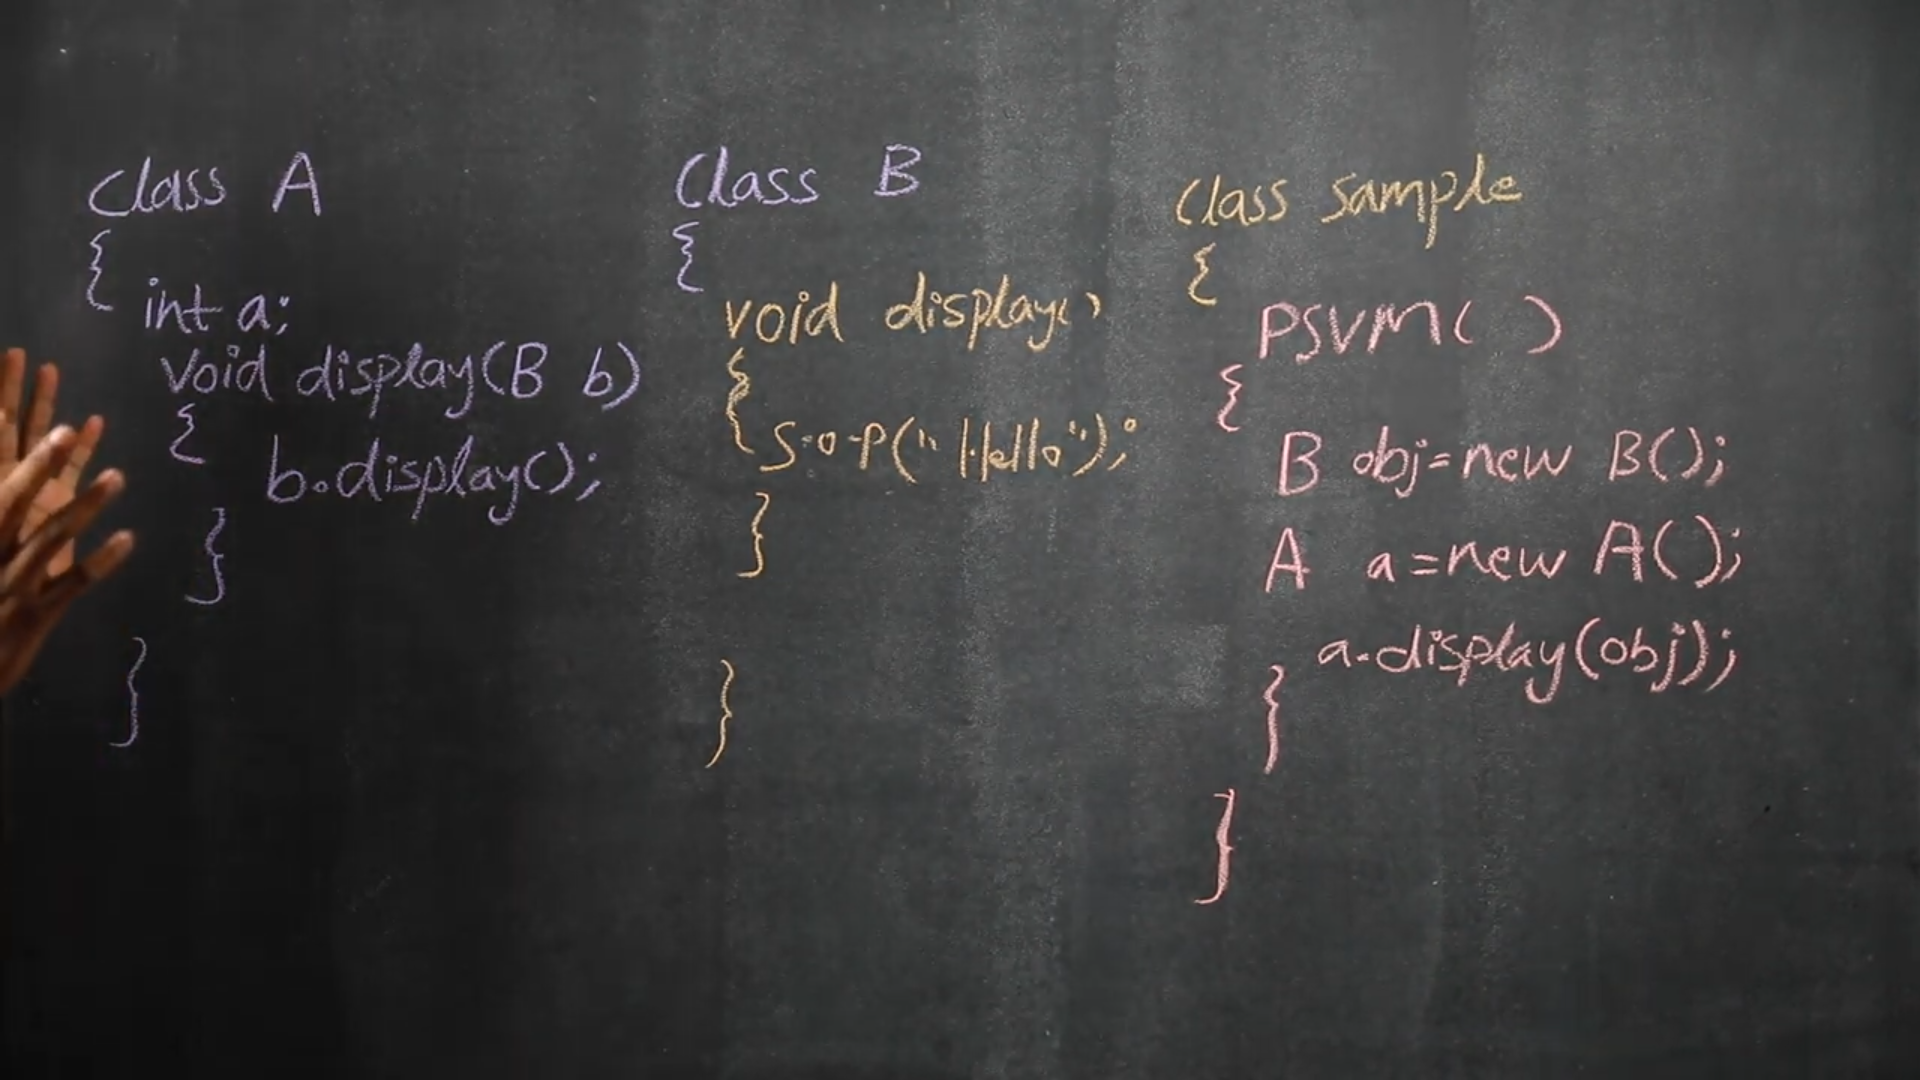 class A
{
int a;
void display(B b)
{
b.display();
}
}
class B
{
void display()
{
S.o.P("Hello");
}
}
class sample
{
PSVM( )
{
B obj=new B();
A a=new A();
a.display(obj);
}
}